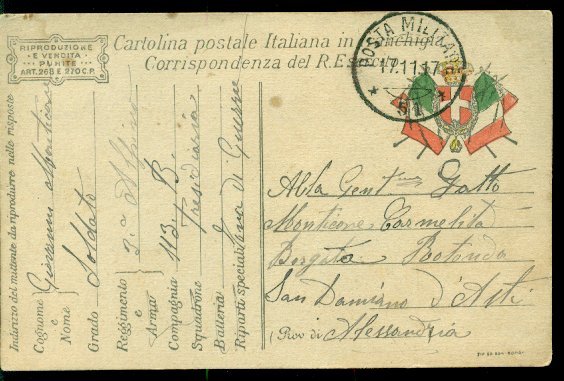 RIPRODUZIONE
E VENDITA
PUNITE
ART. 268 E 270 C.P.
Cartolina postale Italiana in franchigia
Corrispondenza del R. Esercito
POSTA MILITARE
17.11.17
* 51 *
Indirizzo del mittente da riprodurre nelle risposte
Cognome e Nome Giovanni Monticone
Grado Soldato
Reggimento e Arma 2° Alpino
Compagnia 113 B.
Squadrone Presidiaria
Batteria
Riparti speciali Zona di Guerra
Alla Gent ma Gatto
Monticone Carmelita
Borgata Rotonda
San Damiano d'Asti
(Prov di Alessandria